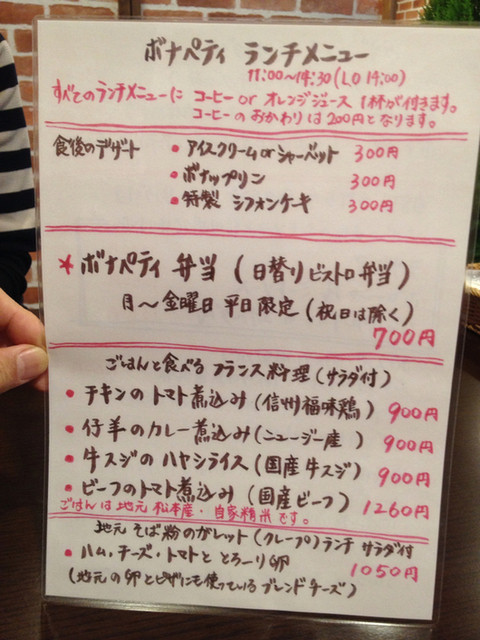 ボナペティ ランチメニュー
11:00〜14:30(L.O 14:00)
すべてのランチメニューに コーヒー or オレンジジュース 1杯が付きます。
コーヒーのおかわりは200円となります。
食後のデザート ・アイスクリームorシャーベット 300円
・ボナップリン 300円
・特製 シフォンケーキ 300円
* ボナペティ 弁当 (日替りビストロ弁当)
月〜金曜日 平日限定 (祝日は除く)
700円
ごはんと食べる フランス料理 (サラダ付)
・チキンのトマト煮込み (信州福味鶏) 900円
・仔羊のカレー煮込み (ニュージー産) 900円
・牛スジの ハヤシライス (国産牛スジ) 900円
・ビーフのトマト煮込み (国産ビーフ) 1260円
ごはんは地元 松本産・自家精米です。
地元 そば粉のガレット (クレープ) ランチ サラダ付
・ハム・チーズ・トマトと とろーり卵 1050円
(地元の卵とピザにも使っているブレンドチーズ)